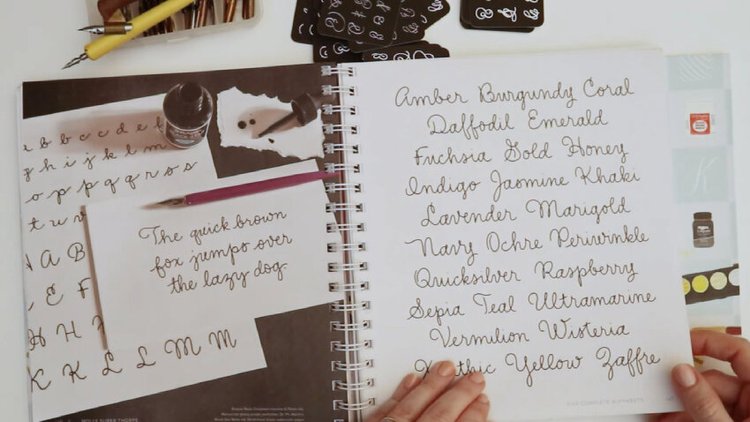 b b c c d e
g h i j k l m m
o p p q q r s
t u
A B
E F
H H
K K L L M M
The quick brown
fox jumps over
the lazy dog
MOLLY SUBER THORPE
Amber Burgundy Coral
Daffodil Emerald
Fuchsia Gold Honey
Indigo Jasmine Khaki
Lavender Marigold
Navy Ochre Periwinkle
Quicksilver Raspberry
Sepia Teal Ultramarine
Vermilion Wisteria
Yellow Zaffre
FIVE COMPLETE ALPHABETS